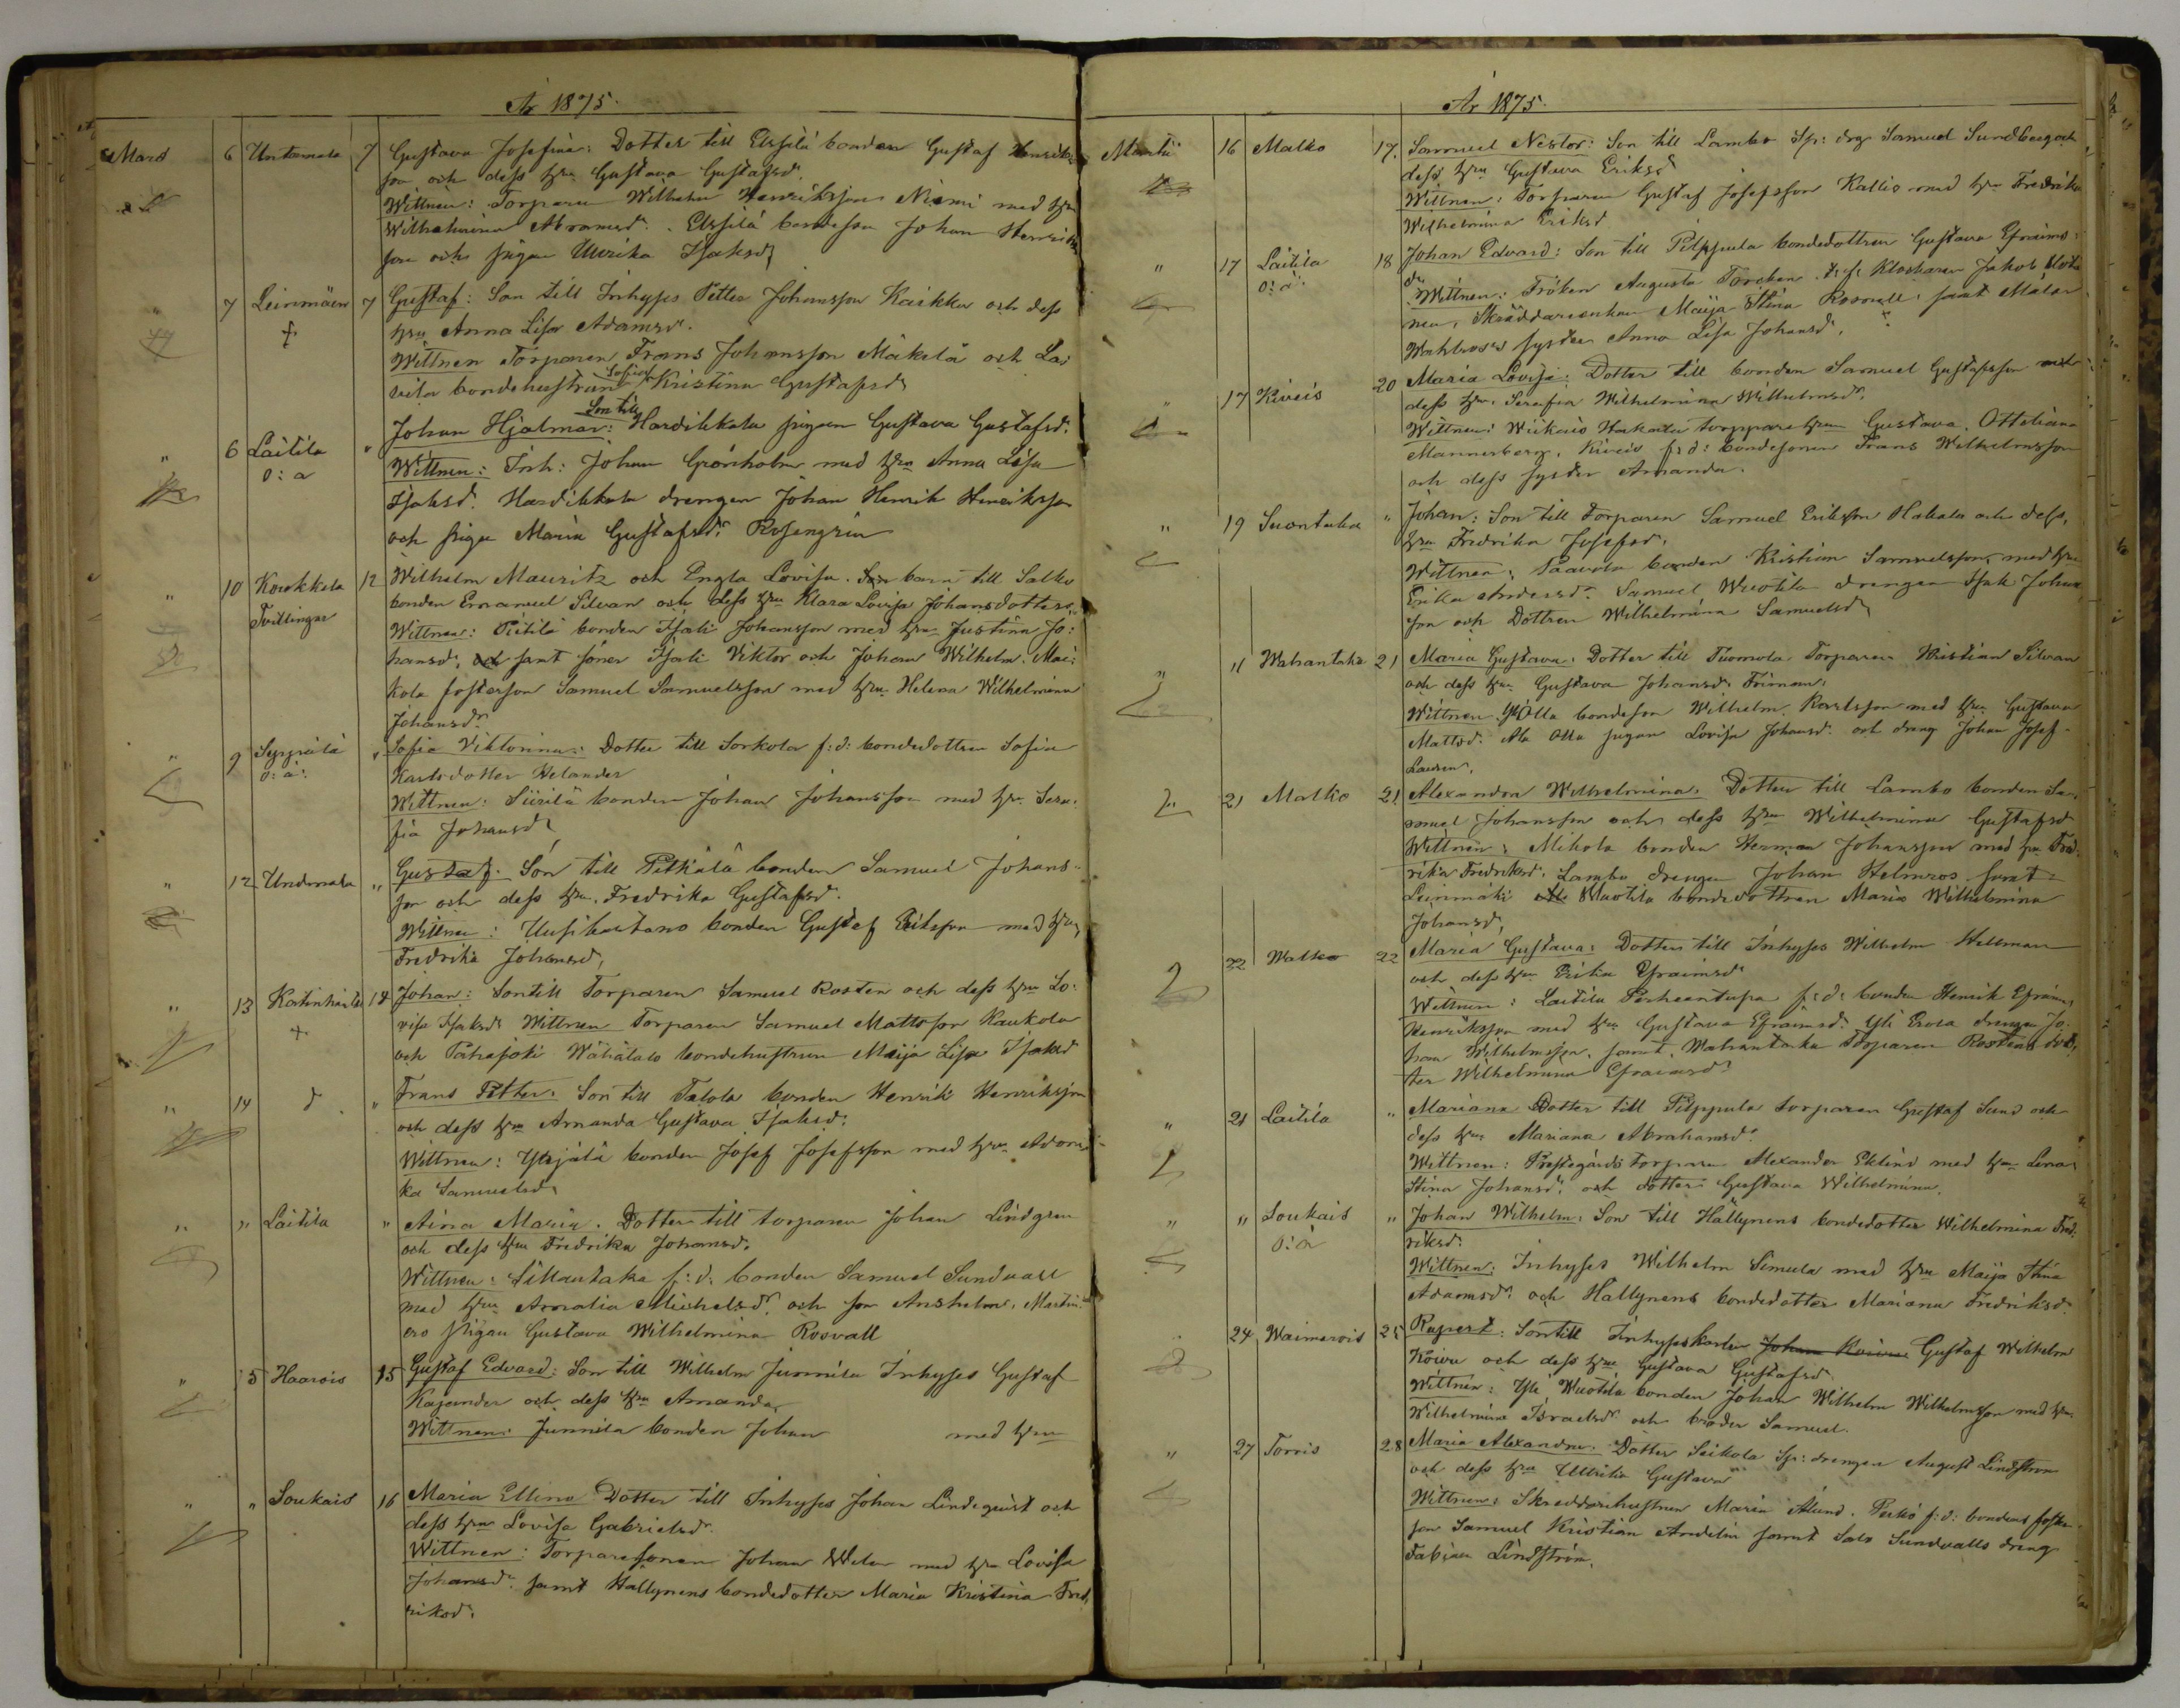 År 1875.
Mars 6 Untamala 7 Gustava Josefina: Dotter till Elssilä bonden Gustaf Henriks
son och dess hru Gustava Gustafsd.
Wittnen: Torparen Wilhelm Henriksson Niemi med hru
Wilhelmina Abramsd. Elssilä bondeson Johan Henriks
son och pigan Ulrika Isaksd
" 7 Leinmäen 7 Gustaf: Son till Inhyses Petter Johansson Kaikku och dess
† hru Anna Lisa Adamsd.
Wittnen Torparen Frans Johansson Mäkelä och La
vila bondehustrun Sofia Kristina Gustafsd
" 6 Laitila " Johan Hjalmar: Son till Hardikkala pigan Gustava Gustafsd.
o: ä Wittnen: Inh: Johan Grönholm med hru Anna Lisa
Isaksd. Hardikkala drengen Johan Henrik Henriksson
och pigan Maria Gustafsd. Rosengrén
" 10 Koukkela 12 Wilhelm Mauritz och Engla Lovisa. Son barn till Salko
Tvillingar bonden Emanuel Silvan och dess hru Klara Lovisa Johansdotter.
Wittnen: Pietilä bonden Isak Johansson med hru Justina Jo:
hansd. och samt söner Isak Viktor och Johan Wilhelm. Mai:
kola fosterson Samuel Samuelsson med hru Helena Wilhelmina
Johansd.
" 9 Seppälä " Sofia Viktorina: Dotter till Sorkola f:d: bondedottren Sofia
o: ä: Karlsdotter Helander
Wittnen: Siirilä bonden Johan Johansson med hru Sera:
fia Johansd
" 12 Undamala " Gustaf. Son till Pitkälä bonden Samuel Johans-
son och dess hru. Fredrika Gustafsd.
Wittnen: Uusikartano bonden Gustaf Eriksson med hru
Fredrika Johansd,
" 13 14 Johan: Son till Torparen Samuel Rosten och dess hru Lo:
† visa Isaksd. Wittnen Torparen Samuel Mattsson Kaukola
och Wähätalo bondehustrun Maija Lisa Isaksd
" 14 d " Frans Petter. Son till Talola bonden Henrik Henriksson
och dess hru Amanda Gustava Isaksd.
Wittnen: Yksjälä bonden Josef Josefsson med hru
ka Samuelsd
" " Laitila " Aina Maria. Dotter till torparen Johan Lindgren
och dess hru Fredrika Johansd.
Wittnen: Sillantaka f:d: bonden Samuel Sundvall
med hru Amalia Michelsd. och son Anshelm, Martin
ero pigan Gustava Wilhelmina Rosvall
" 5 Haarois 15 Gustaf Edvard: Son till Wilhelm Junnila Inhyses Gustaf
Kajander och dess hru Amanda
Wittnen: Junnila bonden Johan med hru
" " Soukais 16 Maria Ellina Dotter till Inhyses Johan Lindqvist och
dess hru Lovisa Gabrielsd.
Wittnen: Torparesonen Johan Welin med hru Lovisa
Johansd. samt Hallynens bondedotter Maria Kristina Fred
riksd.
År 1875.
Martii 16 Malko 17. Samuel Nestor: Son till Lambo Sp: drg Samuel Sundberg och
dess hru Gustava Eriksd
Wittnen: Torparen Gustaf Josefsson Kallio med hru Fredrika
Wilhelmina Eriksd.
" 17 Laitila 18 Johan Edvard: Son till Pilppula bondedottren Gustava Efraims-
o: ä: dr
Wittnen: Fröken Augusta Klockaren Jakob
nen, Skräddarenkan Maija Stina Rosvall, samt Målar
Wahlroos syster Anna Lisa Johansd.
" 17 Kiveis 20 Maria Lovisa: Dotter till bonden Samuel Gustafsson med
dess hru. Serafia Wilhelmina Wilhelmsd.
Wittnen: Wiikais Hakala torppare hrun Gustava Otteliana
Mannerberg, Kiveis f:d: bondesonen Frans Wilhelmsson
och dess syster Amanda.
" 19 Suontaka " Johan: Son till Torparen Samuel Eriksson Hakala och dess,
hru Fredrika Josefsd.
Wittnen: Paavola bonden Kristian Samuelsson, med hru
Erika Andersd. Samuel Wuotila drengen Isak Johans
son och Dottren Wilhelmina Samuelsd
" " Wahantaka 21 Maria Gustava: Dotter till Tuomola Torparen Kristian Silvan
och dess hru Gustava Johansd. Friman.
Wittnen Yli Olla bondeson Wilhelm Karlsson med hru Gustava
Mattsd. Ala Olla pigan Lovisa Johansd. och dreng Johan Josef
Lauren.
" 21 Malko 21. Alexandra Wilhelmina. Dotter till Lambo bonden Sa,
muel Johansson och dess hru Wilhelmina Gustafsd
Wittnen: Mikola bonden Herman Johansson med hru Fred
rika Fredriksd. Lambo drengen Johan Helmroos samt
Leinmäki Wuotila bondedottren Maria Wilhelmina
Johansd.
22 Malko 22 Maria Gustava: Dotter till Inhyses Wilhelm Hellman
och dess hru Erika Efraimsd
Wittnen: Laitila f:d: bonden Henrik Efraim
Henriksson med hru Gustava Efraimsd. Yli Erola drengen Jo-
han Wilhelmsson. samt, Wahantaka Torparen Rostens dot,
ter Wilhelmina Efraimsd.
" 21 Laitila " Mariana Dotter till Pilppula torparen Gustaf Sund och
dess hru Mariana Abrahamsd.
Wittnen: Prestegårds torparen Alexander Eklund med hru Lena
Stina Johansd. och dotter Gustava Wilhelmina.
" " Soukais " Johan Wilhelm: Son till Hällynens bondedotter Wilhelmina Fred:
o: ä riksd.
Wittnen: Inhyses Wilhelm Simula med hru Maija Stina
Adamsd. och Hallynens bondedotter Mariana Fredriksd.
24 Waimarois 25 Rupert: Son till Inhyseskarlen Johan Koivu Gustaf Wilhelm
Koivu och dess hru Gustava Gustafsd
Wittnen: Yli Wuotila bonden Johan Wilhelm Wilhelmsson med hru
Wilhelmina Israelsd. och broder Samuel.
" 27 Torris 28 Maria Alexandra. Dotter Seikola Sp: drengen August Lindström
och dess hru Ullrika Gustava
Wittnen: Skreddarehustrun Maria Ålund. f:d: bondens foster
son Samuel Kristian Andelin samt Salo Sundvalls dreng
Fabian Lindström.